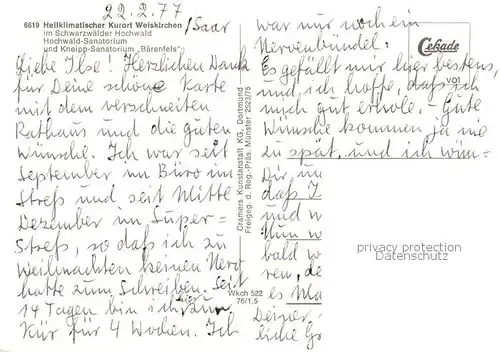 22.2.77
6619 Heilklimatischer Kurort Weiskirchen /Saar
im Schwarzwälder Hochwald
Hochwald-Sanatorium
und Kneipp-Sanatorium „Bärenfels"
Liebe Ilse! Herzlichen Dank
für Deine schöne Karte
mit dem verschneiten
Rathaus und die guten
Wünsche. Ich war seit
September im Büro im
Streß und seit Mitte
Dezember im Super=
Streß, so daß ich zu
Weihnachten keinen Nerv
hatte zum Schreiben. Seit
14 Tagen bin ich hier zur
Kur für 4 Wochen. Ich
Cramers Kunstanstalt KG, Dortmund
Freigeg. d. Reg.-Präs. Münster 2523/75
Wkch 522
76/1,5
war nur noch ein
Nervenbündel.
Es gefällt mir hier bestens,
und ich hoffe, daß ich
mich gut erhole. – Gute
Wünsche kommen ja nie
zu spät, und ich wün=
Dir, un
daß I
und w
Nun w
bald w
ren, de
es Ma
Deiner
liche Gr
Cekade
vol
privacy protection
Datenschutz